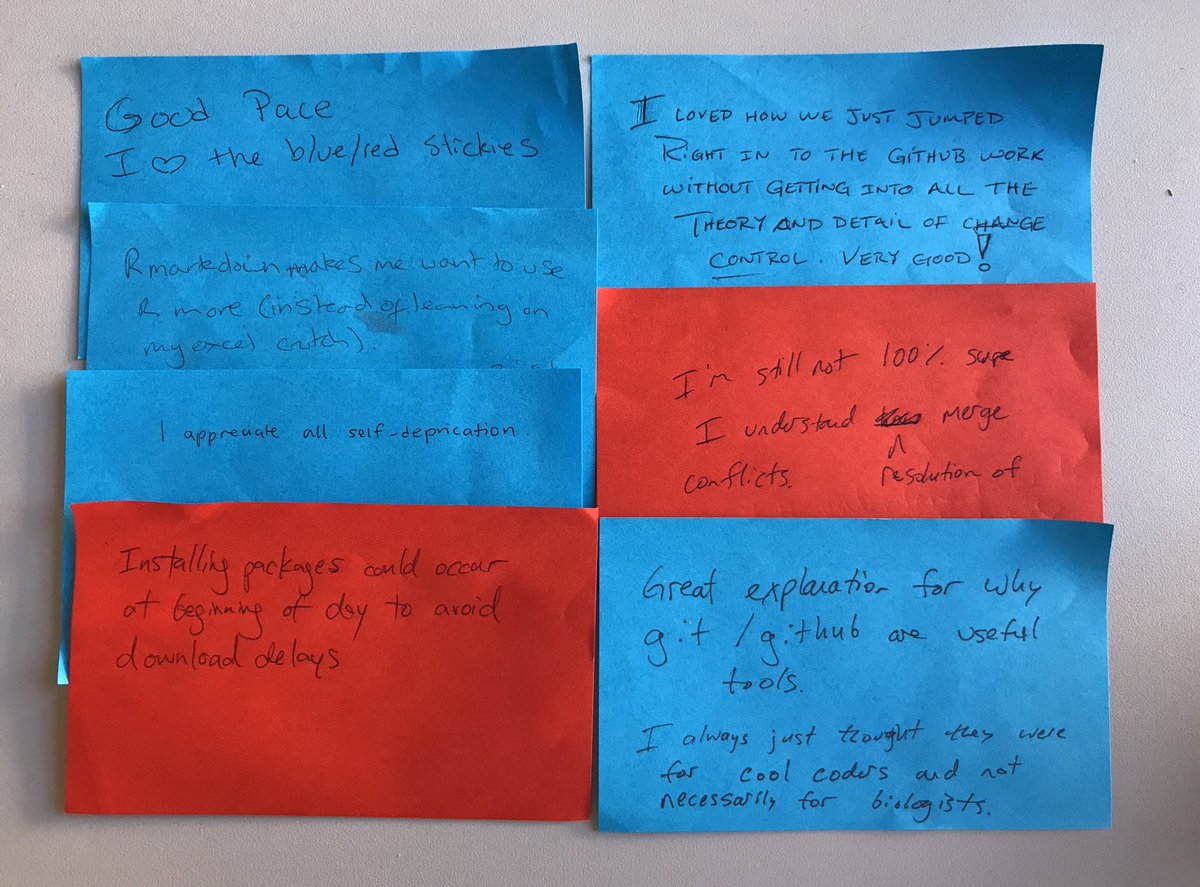 Good Pace
I ♡ the blue/red stickies
Rmarkdown makes me want to use
R more (instead of leaning on
my excel crutch).
I appreciate all self-deprication.
Installing packages could occur
at beginning of day to avoid
download delays
I LOVED HOW WE JUST JUMPED
RIGHT IN TO THE GITHUB WORK
WITHOUT GETTING INTO ALL THE
THEORY AND DETAIL OF CHANGE
CONTROL. VERY GOOD!
I'm still not 100% sure
I understand merge
conflicts. resolution of
Great explanation for why
git/github are useful
tools.
I always just thought they were
for cool coders and not
necessarily for biologists.